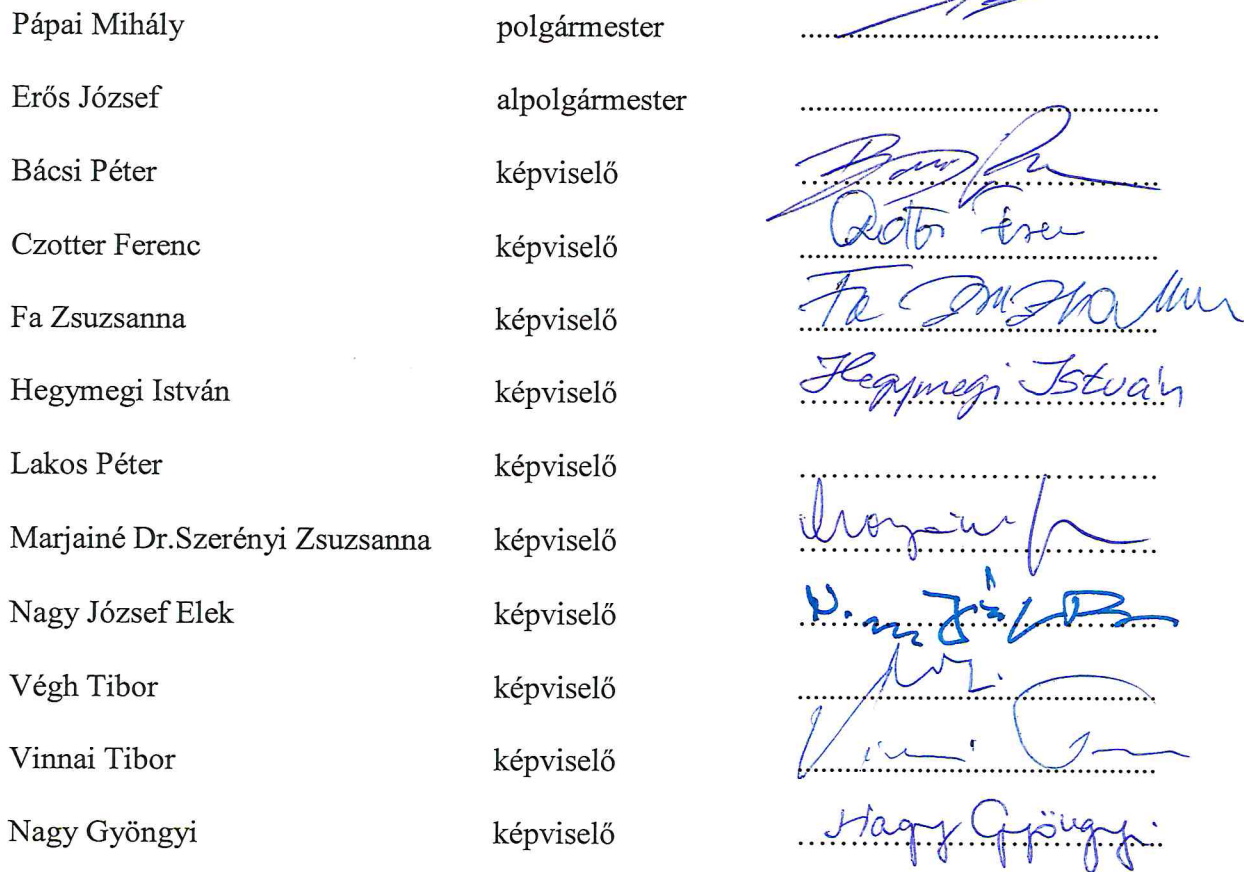 Pápai Mihály polgármester
Erős József alpolgármester
Bácsi Péter képviselő
Czotter Ferenc képviselő
Fa Zsuzsanna képviselő
Hegymegi István képviselő Hegymegi István
Lakos Péter képviselő
Marjainé Dr.Szerényi Zsuzsanna képviselő
Nagy József Elek képviselő
Végh Tibor képviselő
Vinnai Tibor képviselő
Nagy Gyöngyi képviselő Nagy Gyöngyi